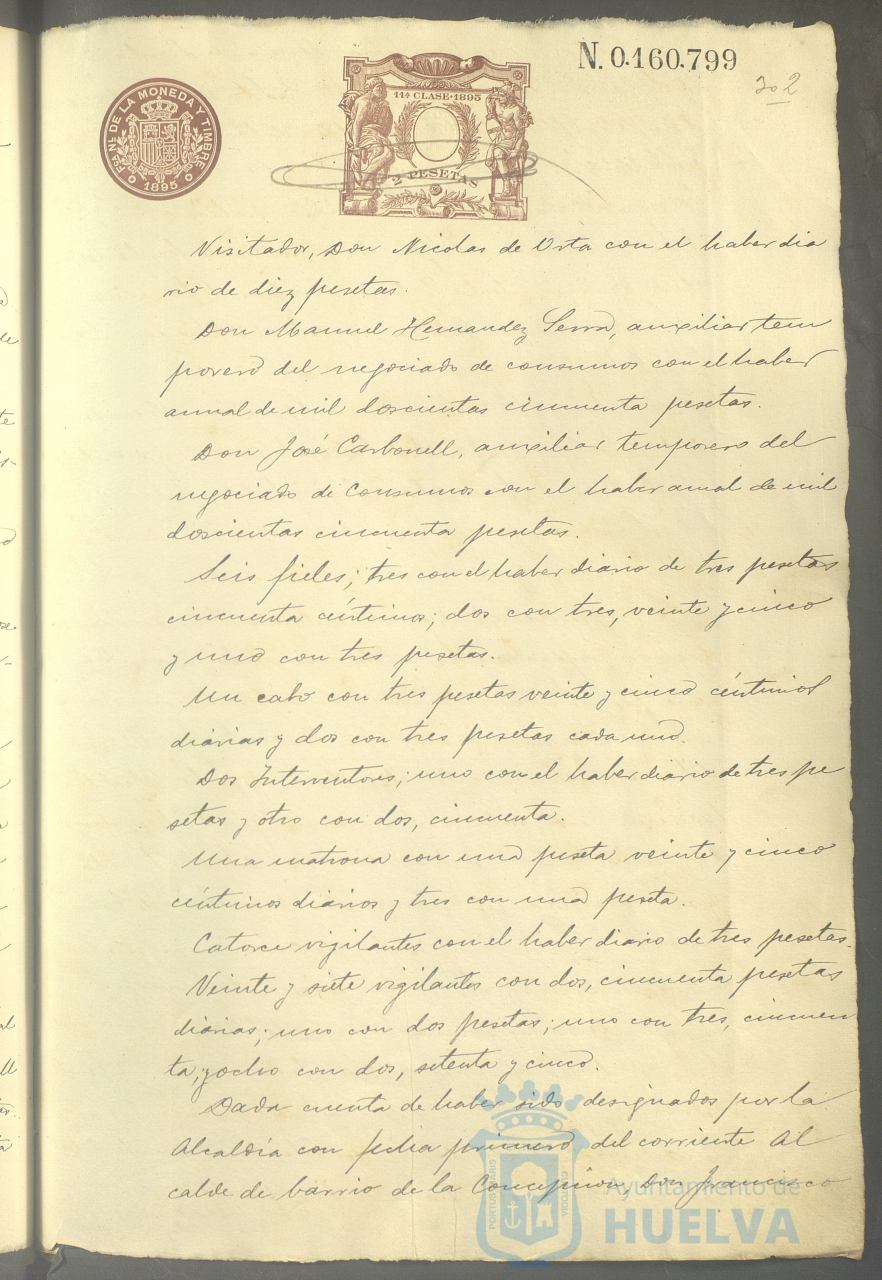 N. 0.160.799
302
FCA. NL. DE LA MONEDA Y TIMBRE
1895
11ª CLASE·1895
2 PESETAS
Visitador, Don Nicolas de Orta con el haber dia
rio de diez pesetas.
Don Manuel Hernandez Serra, auxiliar tem
porero del negociado de consumos con el haber
anual de mil doscientas cincuenta pesetas.
Don José Carbonell, auxiliar temporero del
negociado de Consumos con el haber anual de mil
doscientas cincuenta pesetas.
Seis fieles; tres con el haber diario de tres pesetas
cincuenta céntimos; dos con tres, veinte y cinco
y uno con tres pesetas.
Un cabo con tres pesetas veinte y cinco céntimos
diarias y dos con tres pesetas cada uno.
Dos Interventores; uno con el haber diario de tres pe
setas y otro con dos, cincuenta.
Una matrona con una peseta veinte y cinco
céntimos diarios y tres con una peseta.
Catorce vigilantes con el haber diario de tres pesetas.
Veinte y siete vigilantes con dos, cincuenta pesetas
diarias; uno con dos pesetas; uno con tres, cincuen
ta, y ocho con dos, setenta y cinco.
Dada cuenta de haber sido designados por la
Alcaldía con fecha primero del corriente Al
calde de barrio de la Concepcion, Don Francisco
PORTUS MARIS
ET TERRAE CUSTODIA
Ayuntamiento de
HUELVA